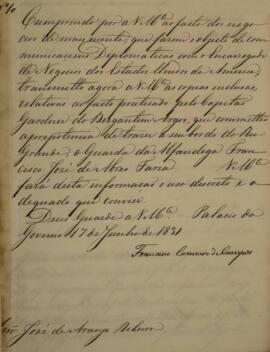 Cumprindo por a V. M.ce ao facto dos nego-
cios de mais monta, que fazem o objecto de com-
municaçoens Diplomaticas com o Encarregado
de Negocios dos Estados Unidos da America,
transmitto agora a V. M.ce as copias inclusas,
relativas ao facto praticado pelo Capitão
Gardner do Bergantim Argos, que commetteo
a prepotencia de trazer a seu bordo do Rio
Grande, o Guarda da Alfandega Fran-
cisco José de Faria V. M.ce
fará desta informacao o uso discreto e a-
dequado que convier.
Deus Guarde a V. M.ce Palacio do
Governo 17 de Junho de 1831
Francisco Carneiro de Campos
Snr. José de Araujo Ribeiro